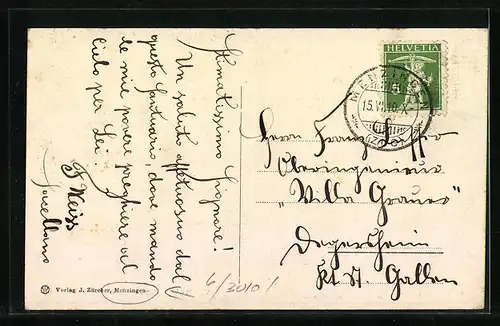 Stimatissimo Signore!
Un saluto affettuoso dal
questo Santuario, dove mando
le mie povere preghiere al
cielo per Lei.
F. Weiss
HELVETIA
MENZINGEN
15.VI.10.X
(ZUG)
Herrn Franz
Oberingenieur
"Villa Grauer"
Degersheim
Kt St. Gallen
Verlag J. Zürcher, Menzingen
6/3010/